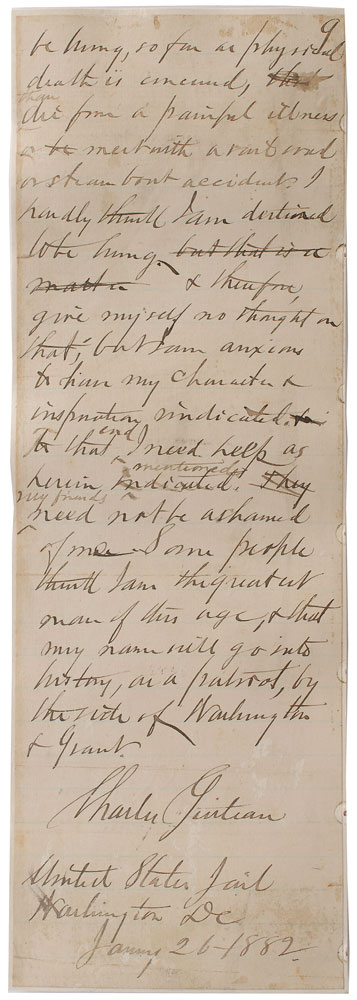 9
be hung, so far as physical
death is concerned, than
than
die from a painful illness
or to meet with a rail road
or steam boat accident. I
hardly think I am destined
to be hung. but that is a
matter & therefore,
give myself no thought on
that; but I am anxious
to have my character &
inspiration vindicated.
To that end I need help as
mentioned
herein indicated. They
my friends
need not be ashamed
of me. Some people
think I am the greatest
man of this age, & that
my name will go into
history, as a patriot, by
the side of Washington
& Grant.
Charles Guiteau
United States Jail
Washington DC
Jany 26-1882.